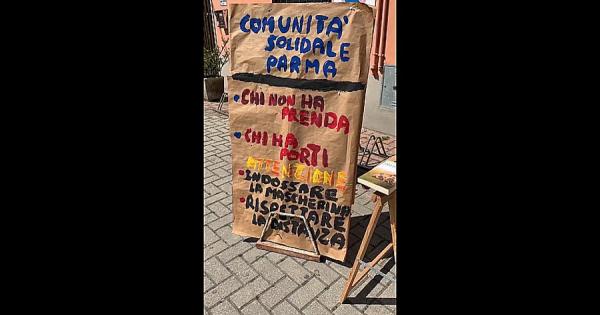 COMUNITA'
SOLIDALE
PARMA
• CHI NON HA
PRENDA
• CHI HA
PORTI
ATTENZIONE
• INDOSSARE
LA MASCHERINA
• RISPETTARE
LA DISTANZA